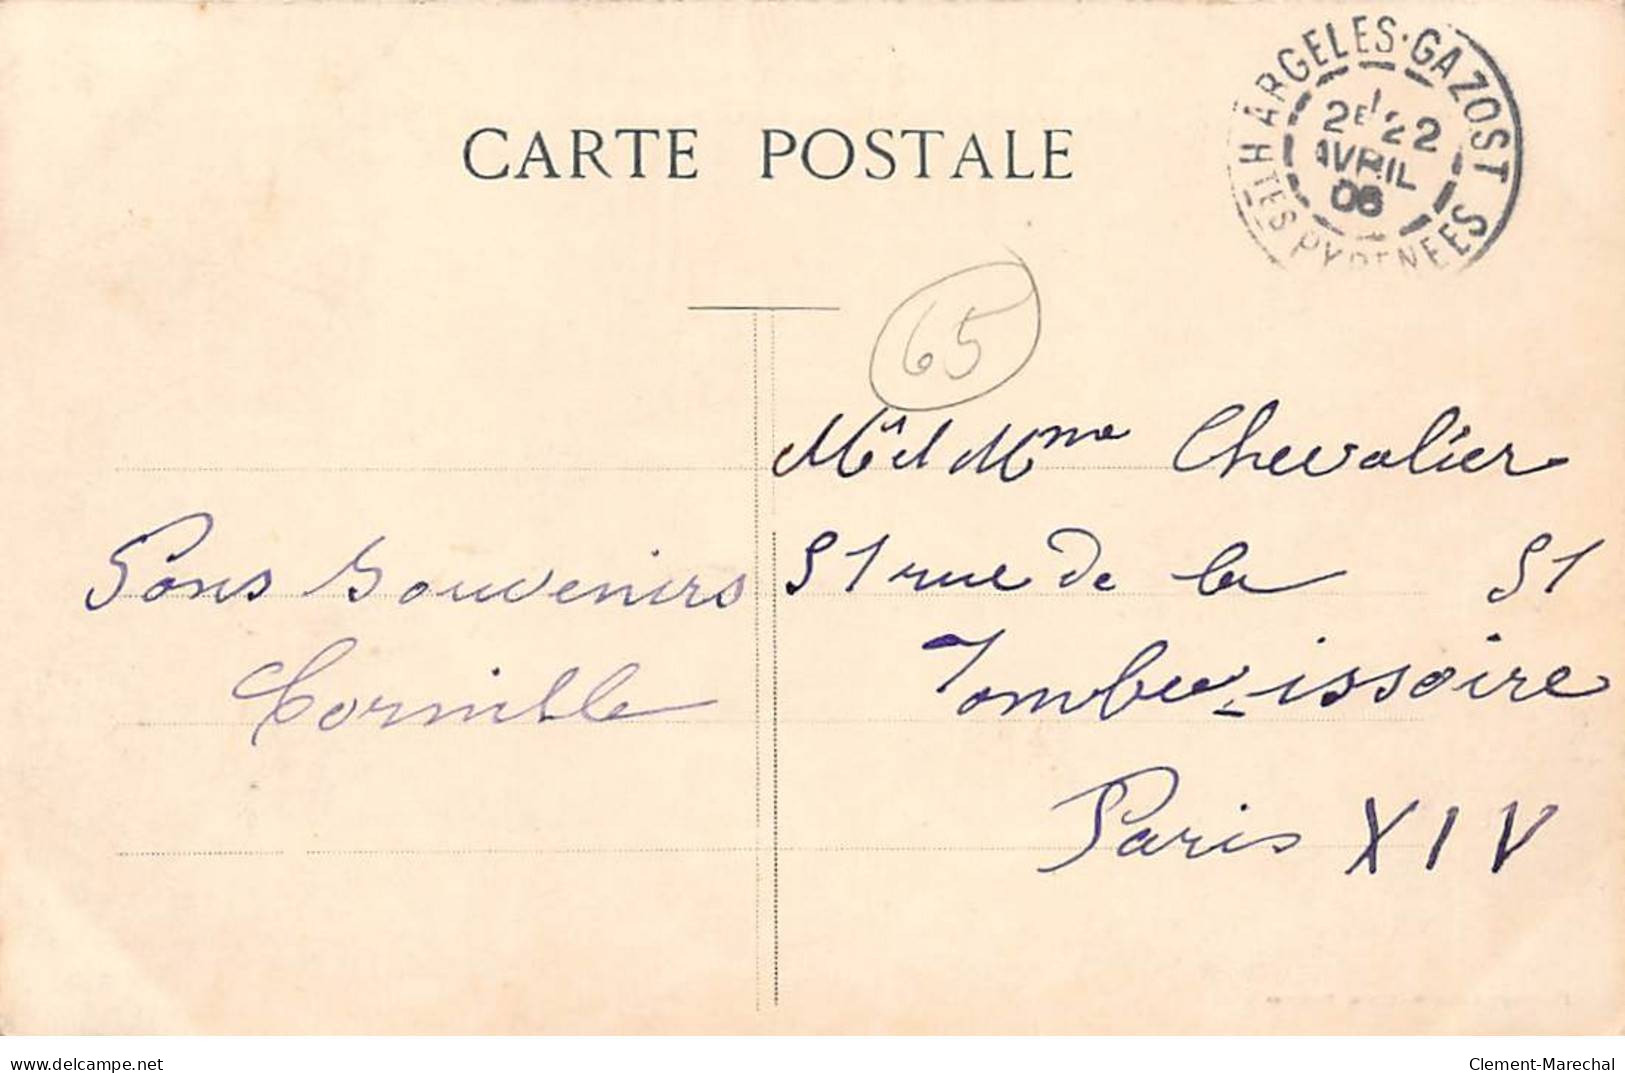 ARGELES-GAZOST
2E 22
AVRIL
06
HTES PYRENEES
CARTE POSTALE
65
Mr et Mme Chevalier
51 rue de la 51
Tombe-issoire
Paris XIV
Bons Souvenirs
Cornille
delcampe.net
Clement-Marechal